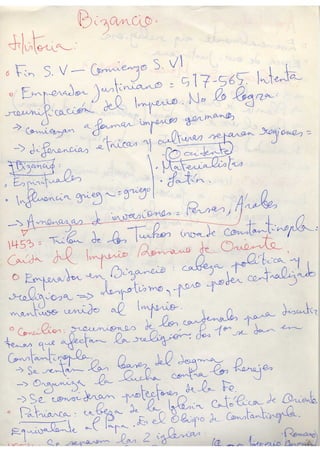 Bizancio.
Historia:
o Fin S. V — Comienzo S. VI
o Emperador Justiniano = 517-565. Intenta
reunificación del Imperio. No lo logra:
→ comienzan a formar imperios germanos
→ diferencias etnicas y culturas separan regiones =
Bizancio: Occidente
. Espirituales · Materialistas
· Influencia griega = griego · Latín.
→ Amenazas de invasiones = Persas, Árabes
1453 = Tribu de los Turkos invade constantinopla:
Caída del Imperio Romano de Oriente
o Emperador en Bizancio: cabeza política y
religiosa => despotismo, pero poder centralizado
mantuvo unido al Imperio.
o Concilios: reuniones de los cardenales para discutir
temas que afectan la religión. Los 1os se dan en
Constantinopla
→ Se sentan las bases del dogma
→ Organiza la lucha contra los herejes
→ Se consideran protectores de la Fe.
o Patriarca: cabeza de la Iglesia Católica de Oriente
Equivalente al Papa. Es el Obispo de Constantinopla.
Se separan las 2 iglesias: Romano